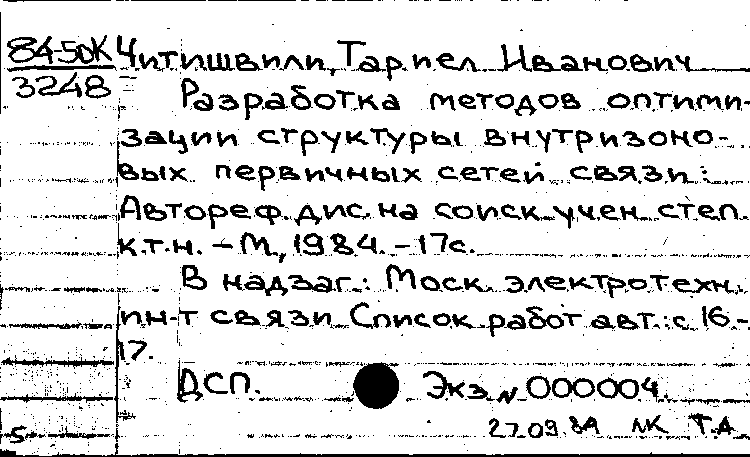 84-5ДК Читишвили, Тариел Иванович
3248
Разработка методов оптими-
зации структуры внутризоно-
вых первичных сетей связи:
Автореф. дис. на соиск. учен. степ.
к.т.н. – М., 1984. – 17с.
В надзаг.: Моск. электротехн.
ин-т связи Список работ авт.: с 16-
17.
ДСП. Экз. N 000004.
27.09.84 NK Т.А
5